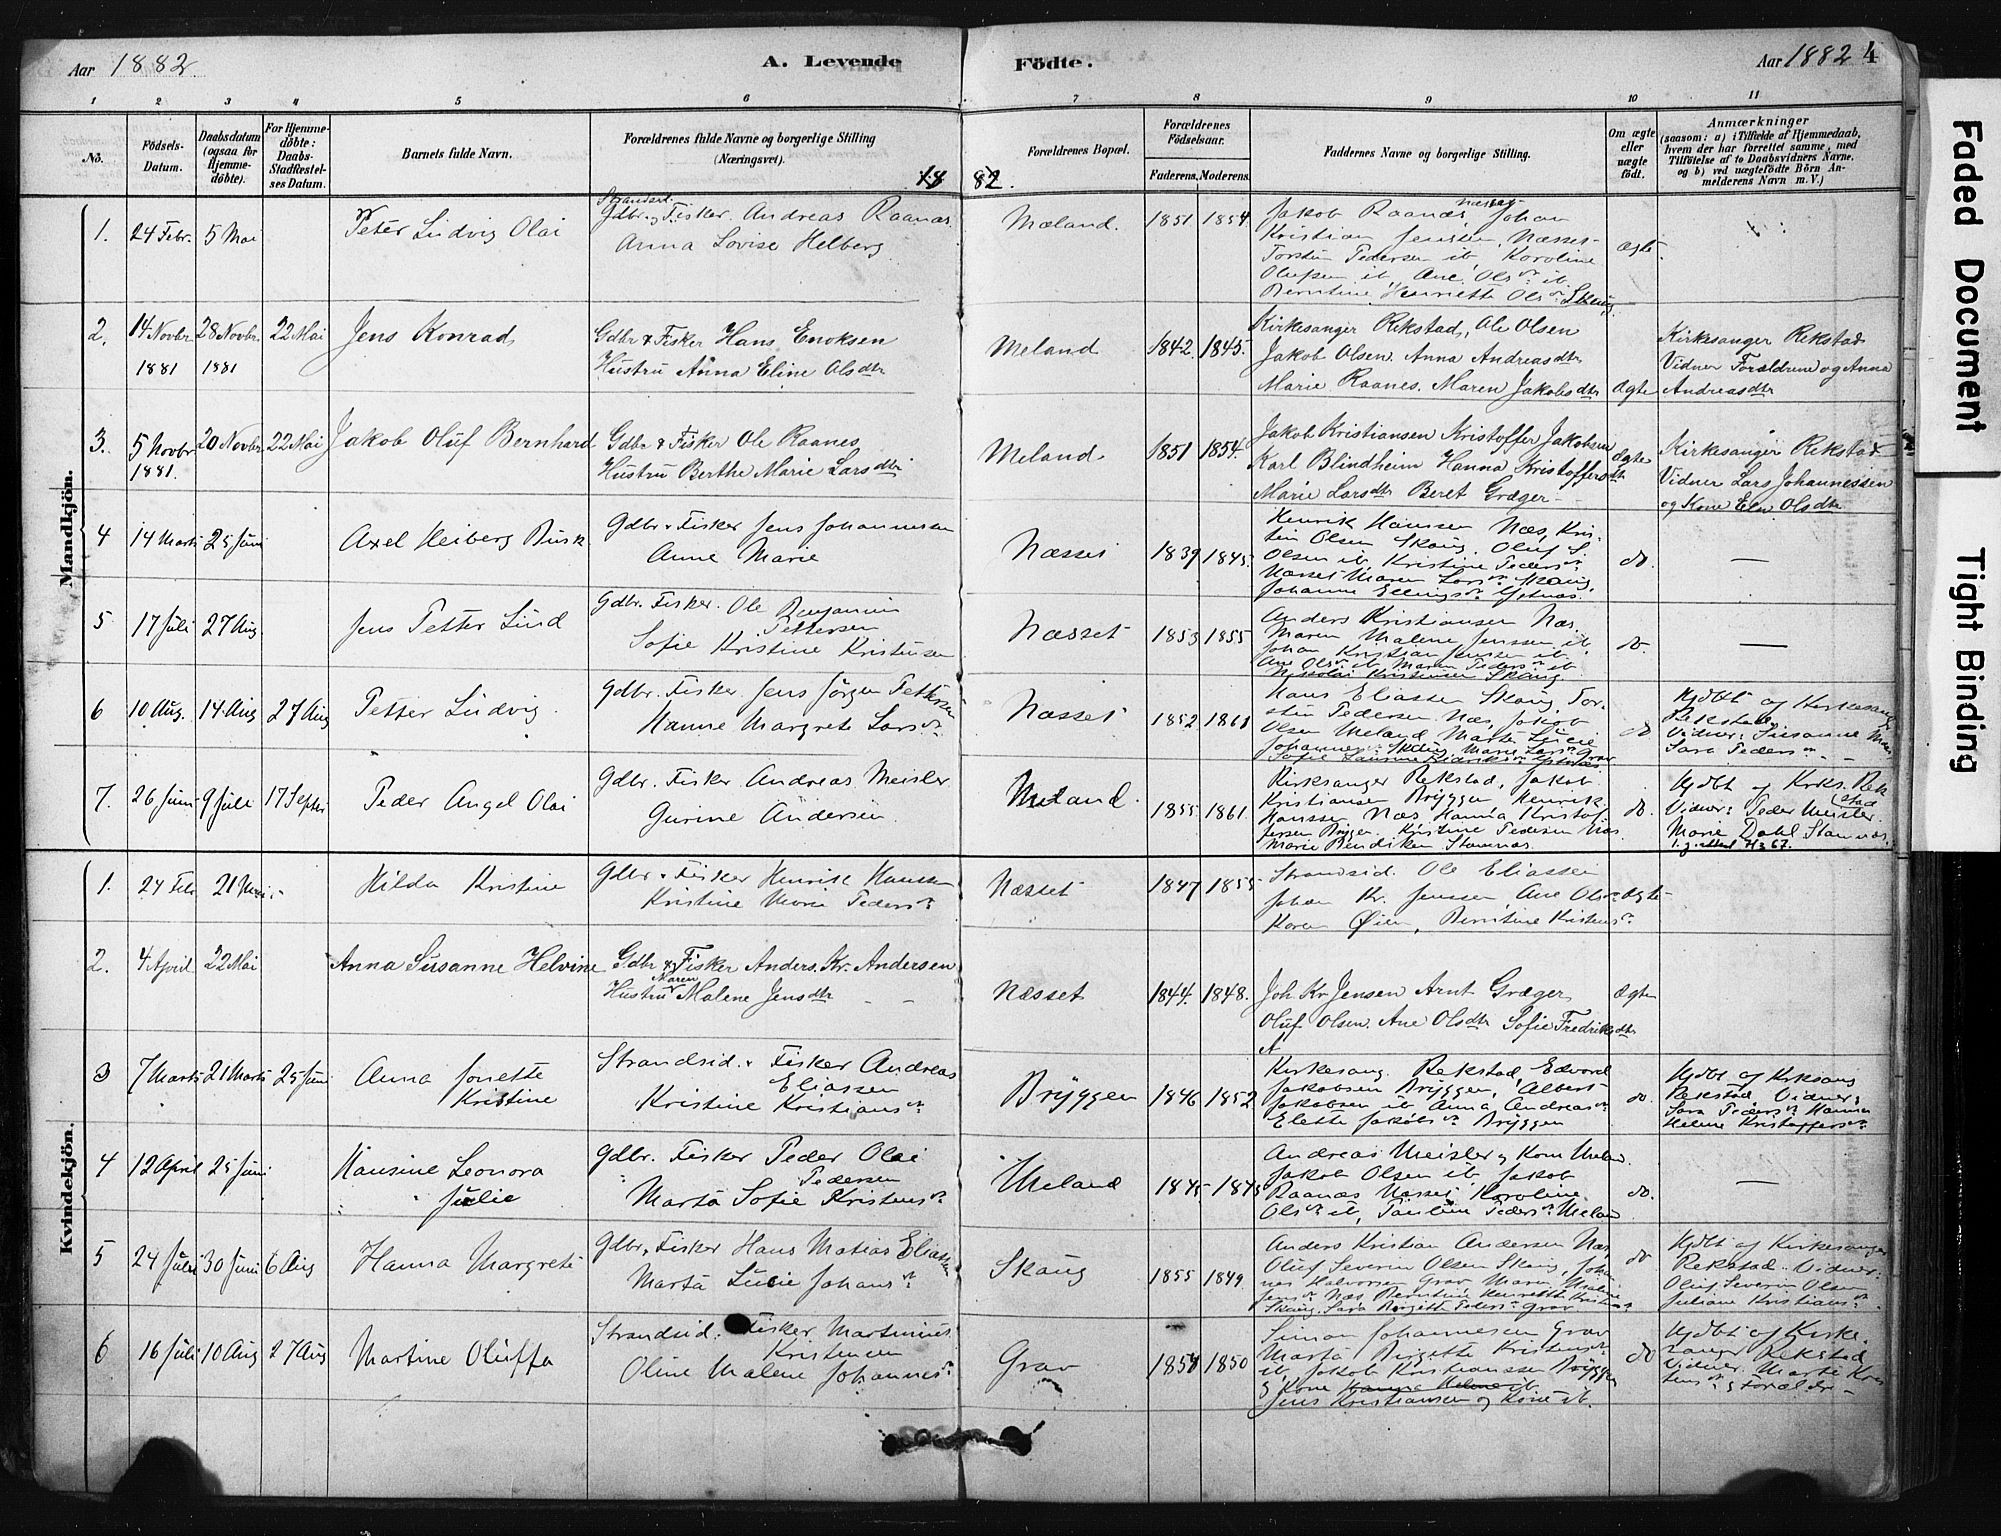 Aar 1882.
A. Levende
Födte.
Aar 1882 4
1 2 3 4 5 6 7 8 9 10 11
No.
Födsels-Datum.
Daabsdatum (ogsaa for Hjemme-döbte).
For Hjemme-döbte: Daabs-Stadfæstel-ses Datum.
Barnets fulde Navn.
Forældrenes fulde Navne og borgerlige Stilling
(Næringsvei).
Forældrenes Bopæl.
Forældrenes Födselsaar.
Faderens. Moderens.
Faddernes Navne og borgerlige Stilling.
Om ægte eller uægte födt.
Anmærkninger
(saasom: a) i Tilfælde af Hjemmedaab, hvem der har forrettet samme, med Tilföielse af to Daabsvidners Navne. og b) ved uægtefödte Börn An-melderens Navn m. V.)
18 82.
Mandkjön.
1. 24 Febr. 5 Mai Peter Ludvig Olai
Gdbr. Fisker. Andreas Raanæs
Anna Lovise Helberg
Mæland. 1851 1854
Jakob Raanæs Næsset Johan
Kristian Jensen, Næsset
Torstin Pedersen ib, Karoline
ib, Ane Olsdr ib
Berntine Henriette Olsdr Skaug
Ægte
2. 14 Novbr 1881 28 Novbr 1881 22 Mai Jens Konrad
Gdbr & Fisker Hans Enoksen
Hustru Anna Eline Olsdtr
Meland 1842. 1845.
Kirkesanger Rekstad, Ole Olsen
Jakob Olsen Anna Andreasdtr
Marie Raanes. Maren Jakobsdtr
Ægte
Kirkesanger Rekstad
Vidner Forældrene og Anna
Andreasdtr
3. 5 Novbr 1881. 20 Novbr 22 Mai Jakob Oluf Bernhard
Gdbr & Fisker Ole Raanes
Hustru Berthe Marie Larsdtr
Meland 1851 1854.
Jakob Kristiansen Kristoffer Jakobsen
Karl Blindheim Hanna Kristoffersdtr
Marie Larsdtr Beret Græger
Ægte
Kirkesanger Rekstad
Vidner Lars Johannessen
og Kone Elen Olsdtr
4 14 Marts 25 Juni Axel Heiberg Busk
Gdbr. Fisker Jens Johannesen
Anne Marie
Næsset 1839 1845.
Henrik Hanssen Næs, Kri-
stin Olsen Skaug. Oluf S.
Olsen ib, Kristine Pedersdr
Næsset Maren Larsdr Skaug
Johanne Ellingsdr
do. —
5 17 Juli 27 Aug. Jens Petter Lund
Gdbr. Fisker. Ole Benjamin
Pettersen
Sofie Kristine Kristensen
Næsset 1853 1855
Anders Kristiansen Næs.
Maren Malene Jenssen ib.
Johan Kristian Jensen ib
Ane Olsdr ib Maren Pedersdr ib
Nikolai Kristensen Skaug
do. —
6 10 Aug. 14 Aug 27 Aug Petter Ludvig
Gdbr. Fisker. Jens Jörgen Pettersen
Hanne Margrete Larsdr
Næsset 1852 1861
Hans Eliassen Skaug, Tor-
stin Pedersen Næs, Jakob
Olsen Meland Marta Lucie
Johannesdr Skaug, Marie Larsdr Grav
do
Hjdbt af Kirkesang
Rekstad.
Vidner: Susanne
Sara Pedersdr
7. 26 Juni 9 Juli 17 Septbr Peder Angel Olai
Gdbr. Fisker Andreas Meisler
Gurine Andersen
Meland. 1855 1861.
Kirksanger Rekstad, Jakob
Kristiansen Bryggen Henrik
Hanssen Næs Hanna Kristof-
fersen Brygen. Kristine Pedersen Næs
Marie Bendiksen Stamnæs.
do.
Hjdbt af Krks. Rek
stad
Vidner: Peder Meisler.
Marie Dahl Stamnæs.
Kvindekjön.
1. 24 Feb 21 Mai Hilda Kristine
Gdbr. Fisker Henrik Hanssen
Kristine Marie Pedersdr
Næsset 1847 1855
Strandsid. Ole Eliassen
Johan Kr. Jenssen, Ane Olsdr
Karen Øien, Berntine Kristensdr
Ægte
2. 4 April 22 Mai Anna Susanne Helvine
Gdbr & Fisker Anders. Kr. Andersen
Hustru Maren Malene Jensdtr
Næsset 1844. 1848.
Joh Kr Jensen Arnt Græger
Oluf Olsen. Ane Olsdtr Sofie Fredriksdtr
Ægte
3 7 Marts 21 Marts 25 Juni Anna Jonette
Kristine
Strandsid. Fisker Andreas
Eliassen
Kristine Kristiansdr
Bryggen 1846 1852
Kirkesang. Rekstad, Edvard
Jakobsen Bryggen, Albert
Jakobsen ib Anna Andreasdr
Elette Jakobsdr Bryggen
do.
Hjdbt af Krksang
Rekstad, Vidner:
Sara Pedersdr Hanna
Helene Kristoffersdr
4 12 April 25 Juni Hansine Leonora
Julie
Gdbr. Fisker Peder Olai
Pedersen
Marta Sofie Kristensdr
Meland 1845 1845
Andreas Meisler og Kone Melan.
Jakob Olsen ib, Jakob
Raanæs Næsset Karoline
Olsdr ib, Pauline Pedersdr Melan
do. —
5 24 Juli 30 Juni 6 Aug Hanna Margrete
Gdbr. Fisker Hans Matias Eliassen
Marta Lucie Johansdr
Skaug 1855 1849.
Anders Kristian Andersen Næs,
Oluf Severin Olsen Skaug, Joha-
nes Halvorsen Grav Maren Malene
Jensdr Næs Berntine Henriette Kristensdr
Skaug. Sara Birgitte Pedersdr Grav
do
Hjdbt af Kirkesanger
Rekstad. Vidner:
Oluf Severin Olsen
Juliane Kristiansdr
6 16 Juli 10 Aug 27 Aug Martine Oluffa
Strandsid. Fisker Martinus
Kristensen
Oline Malene Johannesdr
Grav 1854 1850
Simon Johannesen Grav
Marta Birgitte Kristensdr
ib, Jakob Kristianssen Bryggen
og Kone Hanna Helene ib
Jens Kristiansen og Kone ib.
do
Hjdbt af Kirke-
sanger Rekstad
Vidner. Marte Kris
tensdr og Forældr
Faded Document
Tight Binding